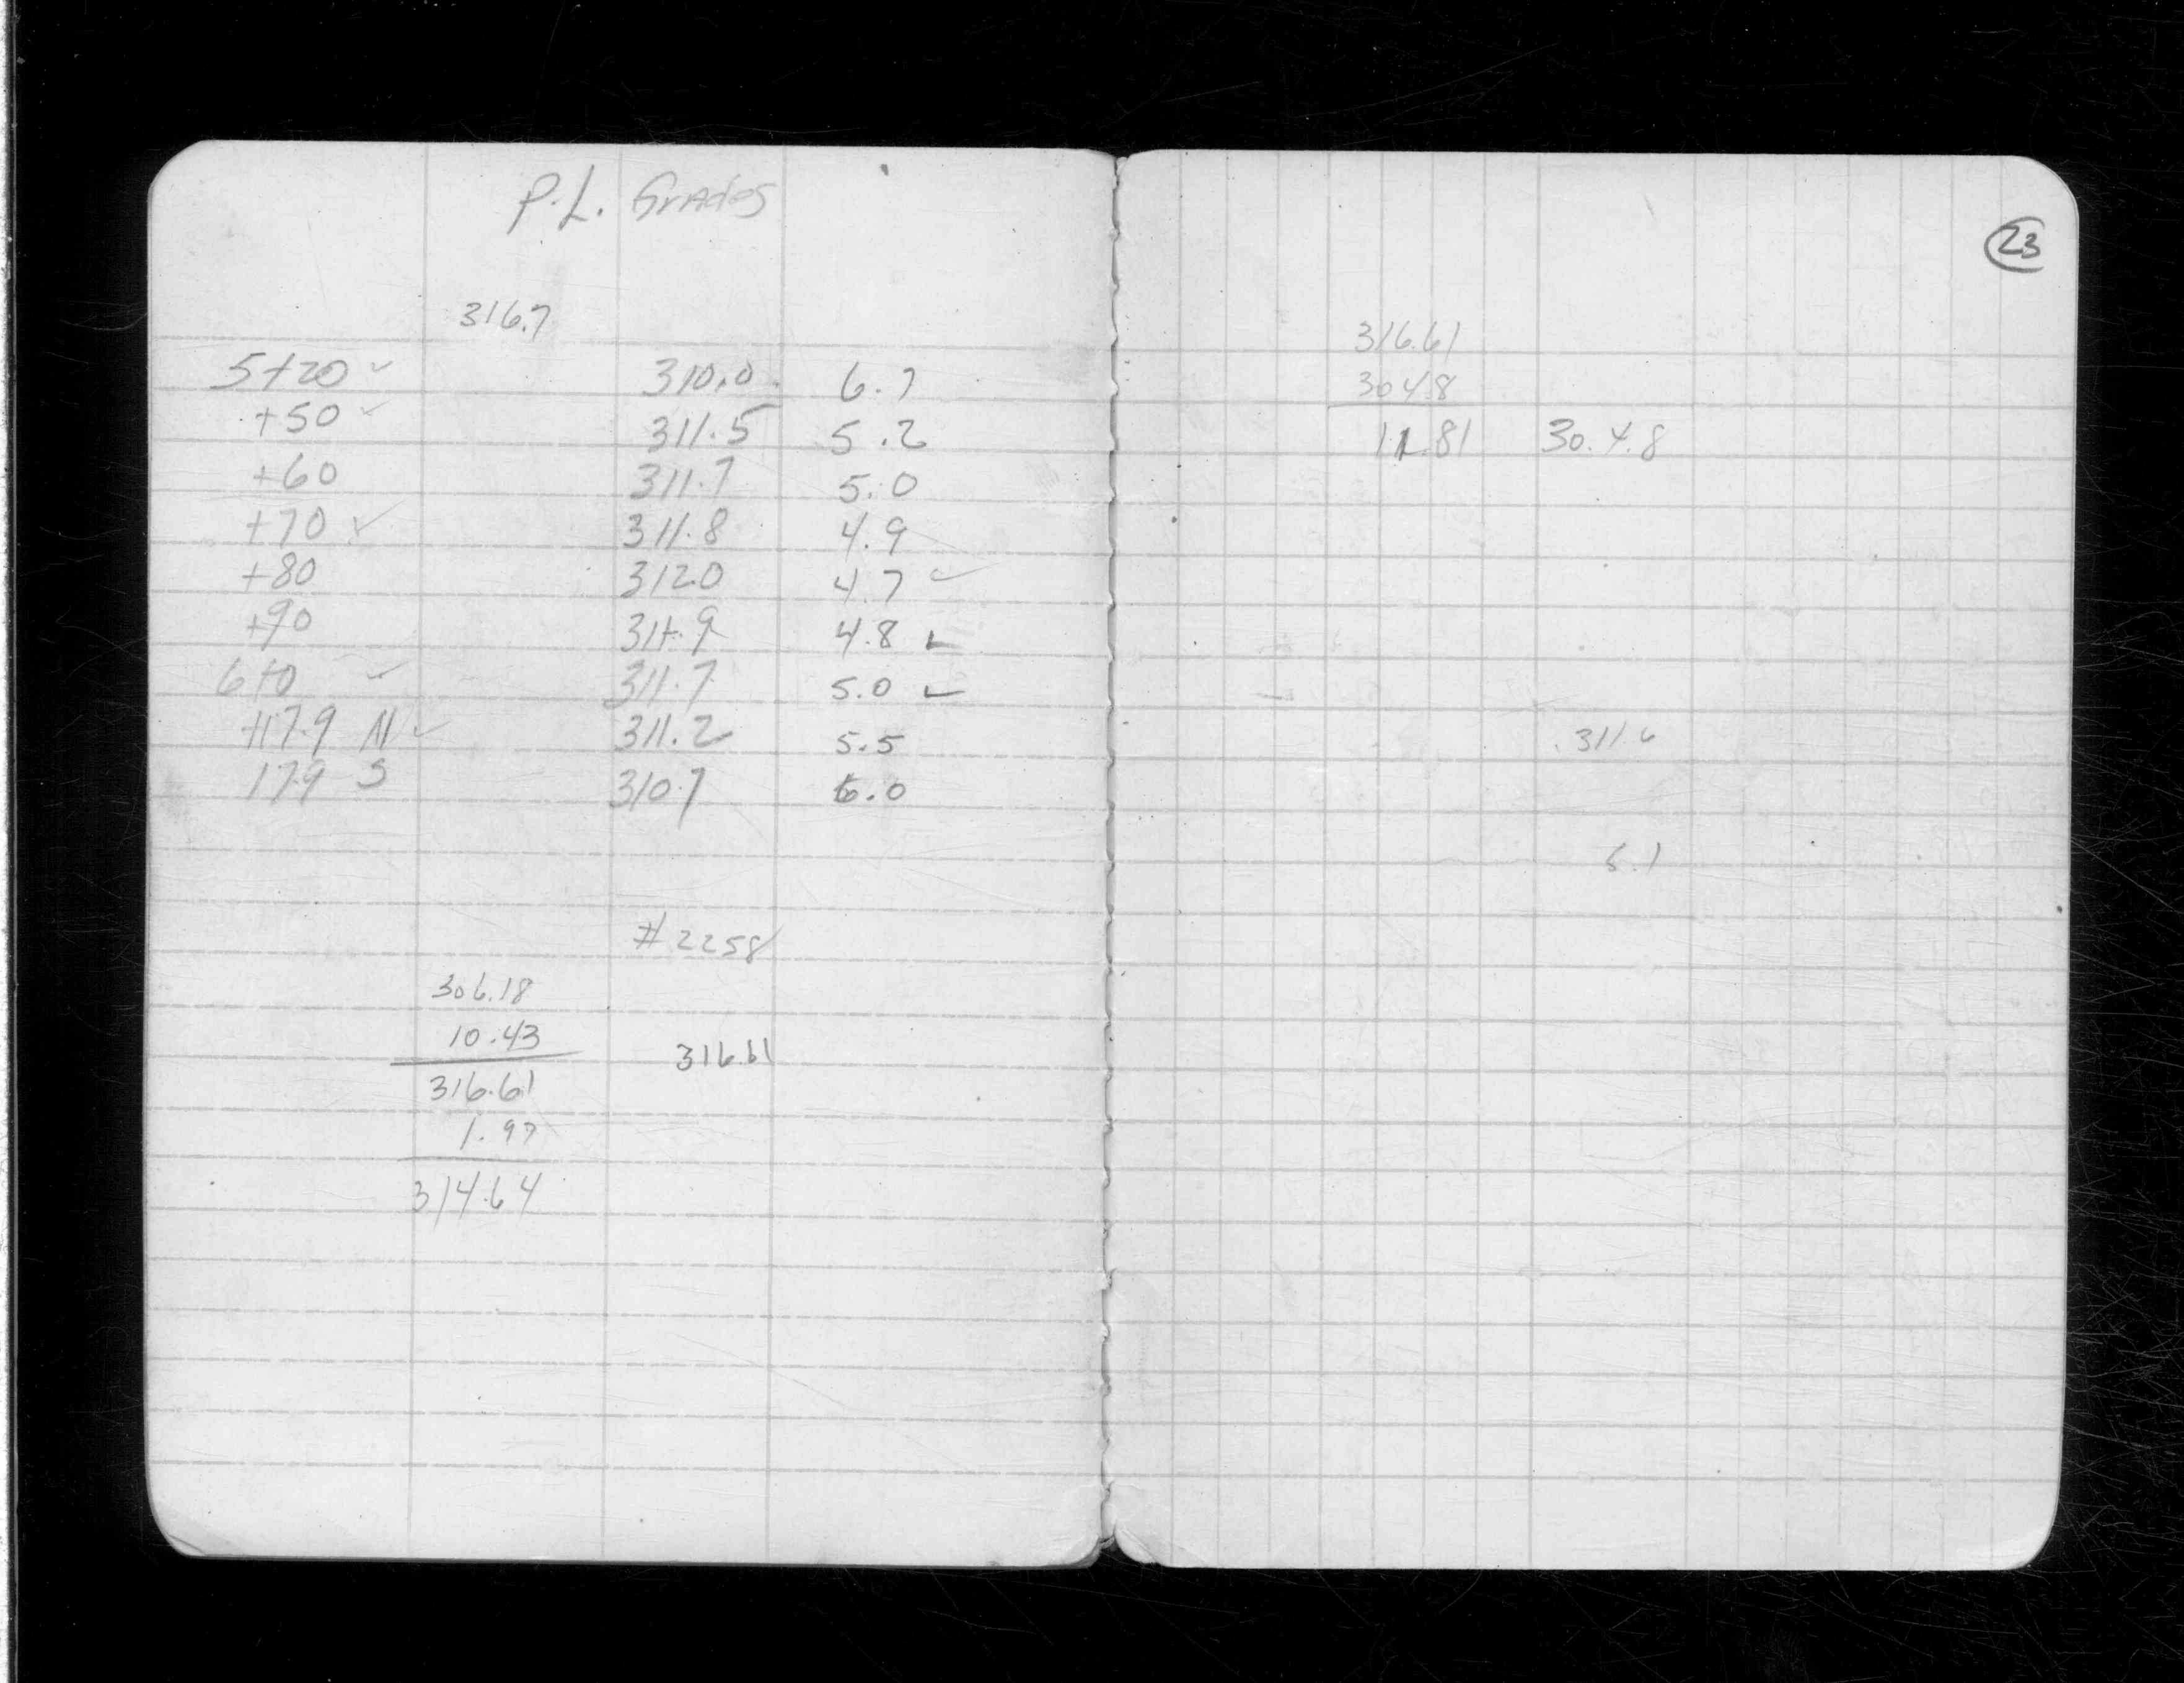 P.L. Grades
316.7
5+20 ✓ 310.0 6.7
+50 ✓ 311.5 5.2
+60 311.7 5.0
+70 ✓ 311.8 4.9
+80 3120 4.7 ✓
+90 311.9 4.8 ✓
6+0 ✓ 311.7 5.0 ✓
+17.9 N ✓ 311.2 5.5
17.9 S 310.7 6.0
#2258
306.18
10.43 316.61
316.61
1.97
314.64
23
316.61
304.8
11.81 30.4.8
311.6
5.1